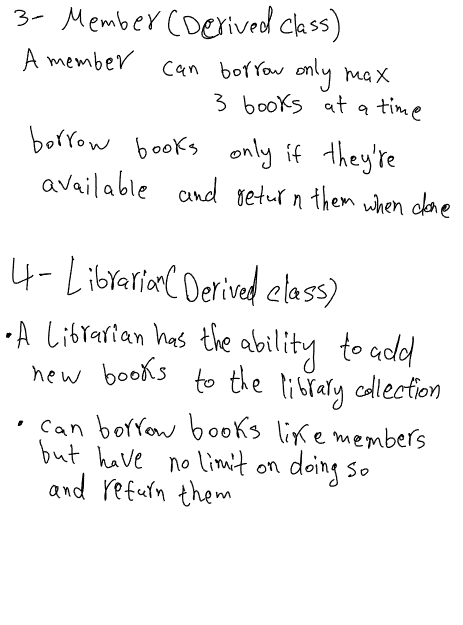 3- Member (Derived class)
A member can borrow only max
3 books at a time
borrow books only if they're
available and return them when done
4- Librarian (Derived class)
• A Librarian has the ability to add
new books to the library collection
• can borrow books like members
but have no limit on doing so
and return them